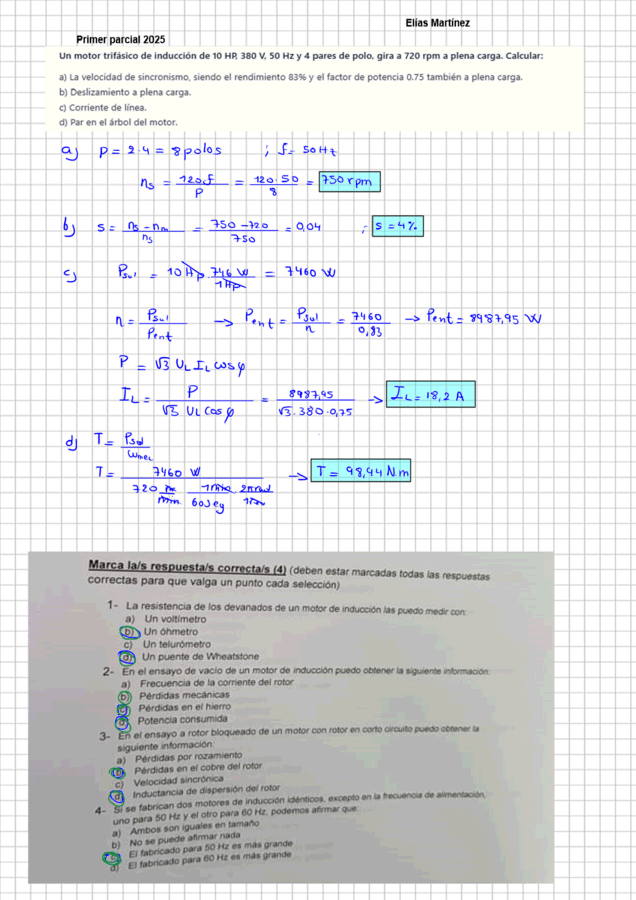 Elías Martínez
Primer parcial 2025
Un motor trifásico de inducción de 10 HP, 380 V, 50 Hz y 4 pares de polo, gira a 720 rpm a plena carga. Calcular:
a) La velocidad de sincronismo, siendo el rendimiento 83% y el factor de potencia 0.75 también a plena carga.
b) Deslizamiento a plena carga.
c) Corriente de línea.
d) Par en el árbol del motor.
a) P = 2·4 = 8 polos ; f = 50 Hz
ns = 120·f / P = 120·50 / 8 = 750 rpm
b) s = ns - nm / ns = 750 - 720 / 750 = 0,04 ; s = 4%
c) Psal = 10 Hp · 746 W / 1 Hp = 7460 W
η = Psal / Pent → Pent = Psal / η = 7460 / 0,83 → Pent = 8987,95 W
P = √3 UL IL cos φ
IL = P / √3 UL cos φ = 8987,95 / √3·380·0,75 → IL = 18,2 A
d) T = Psal / ωmec
T = 7460 W / 720 rev/min · 1 min/60 seg · 2π rad/1 rev → T = 98,94 N.m
Marca la/s respuesta/s correcta/s (4) (deben estar marcadas todas las respuestas
correctas para que valga un punto cada selección)
1- La resistencia de los devanados de un motor de inducción las puedo medir con:
a) Un voltímetro
b) Un óhmetro
c) Un telurómetro
d) Un puente de Wheatstone
2- En el ensayo de vacío de un motor de inducción puedo obtener la siguiente información:
a) Frecuencia de la corriente del rotor
b) Pérdidas mecánicas
c) Pérdidas en el hierro
d) Potencia consumida
3- En el ensayo a rotor bloqueado de un motor con rotor en corto circuito puedo obtener la
siguiente información:
a) Pérdidas por rozamiento
b) Pérdidas en el cobre del rotor
c) Velocidad sincrónica
d) Inductancia de dispersión del rotor
4- Si se fabrican dos motores de inducción idénticos, excepto en la frecuencia de alimentación,
uno para 50 Hz y el otro para 60 Hz, podemos afirmar que:
a) Ambos son iguales en tamaño
b) No se puede afirmar nada
c) El fabricado para 50 Hz es más grande
d) El fabricado para 60 Hz es más grande